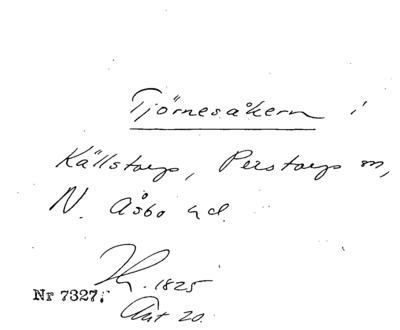 Tjörnesåkern i
Källstorp, Perstorps sn,
N. Åsbo hd.
Lh. 1825
Nr 7327.
Akt 20.